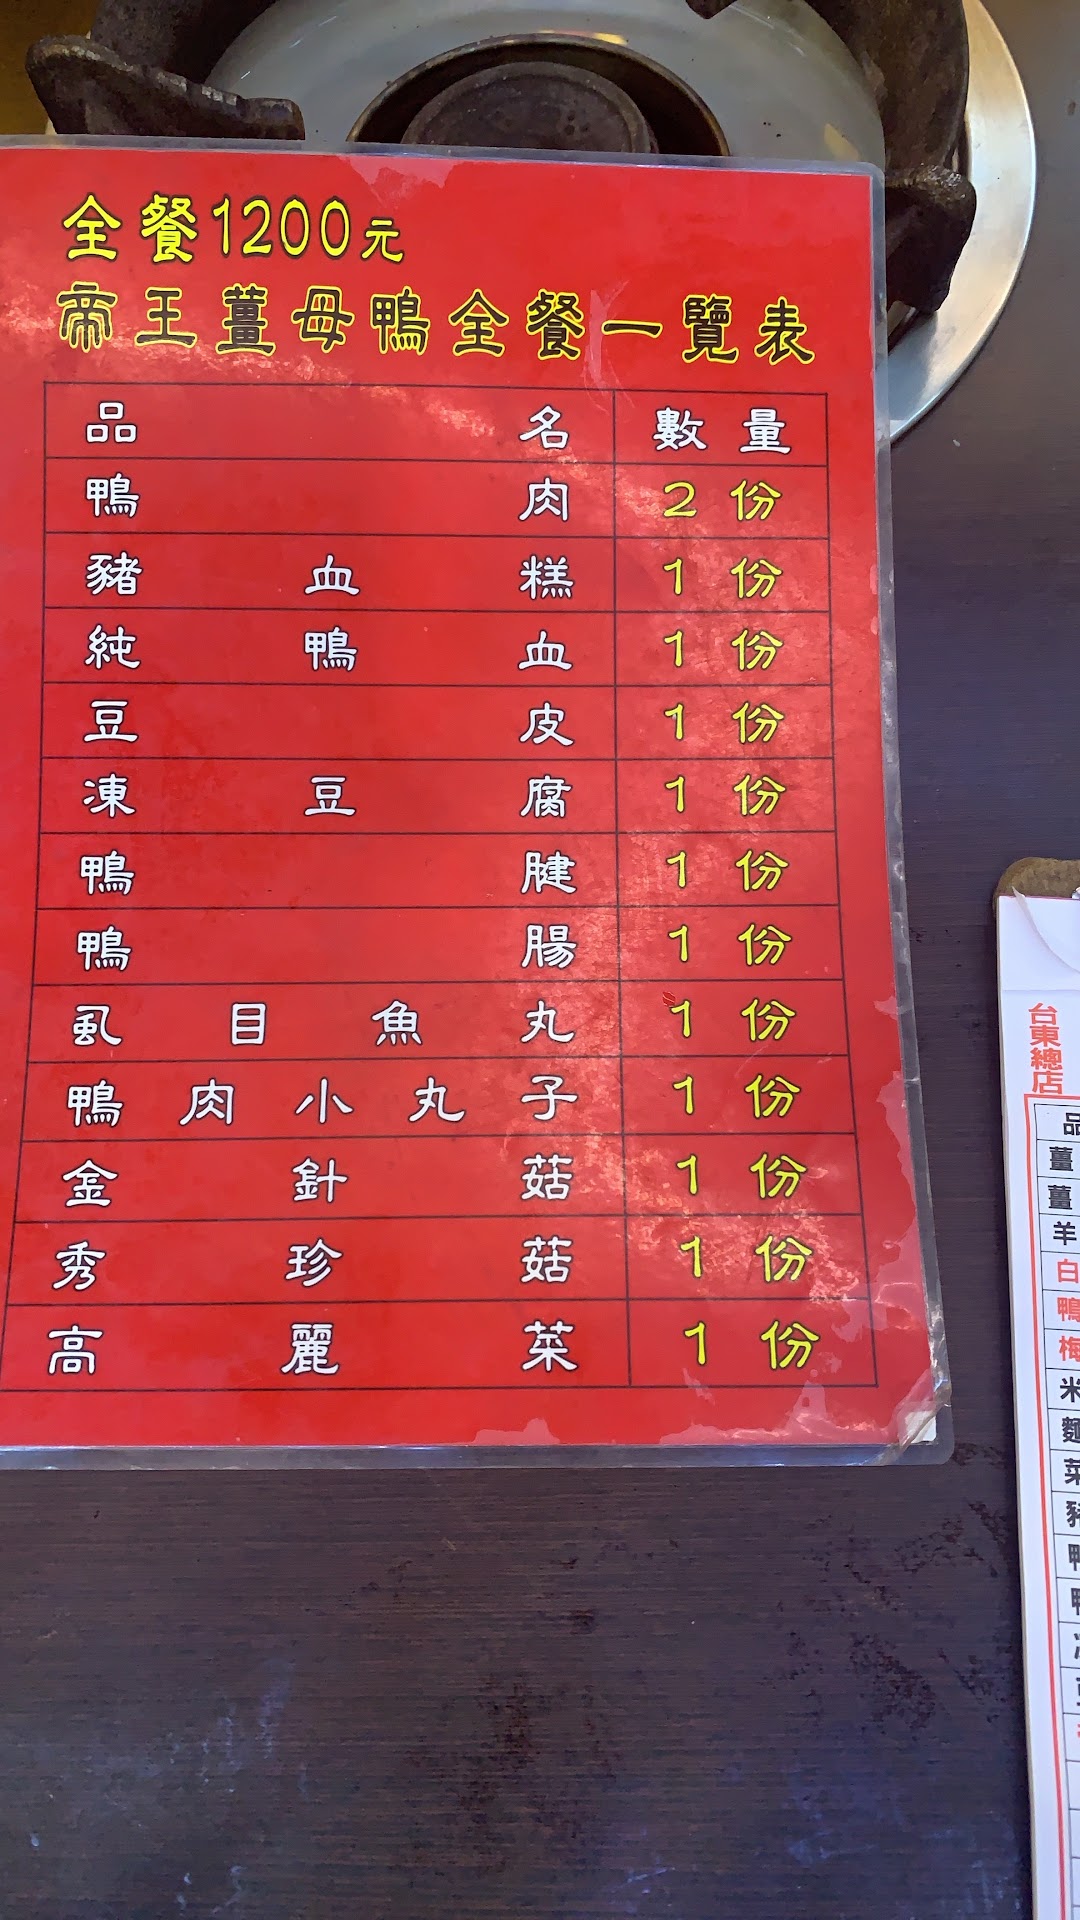 全餐1200元
帝王薑母鴨全餐一覽表
品名 數量
鴨肉 2份
豬血糕 1份
純鴨血 1份
豆皮 1份
凍豆腐 1份
鴨腱 1份
鴨腸 1份
虱目魚丸 1份
鴨肉小丸子 1份
金針菇 1份
秀珍菇 1份
高麗菜 1份
台東總店
品
薑
薑
羊
白
鴨
梅
米
麵
菜